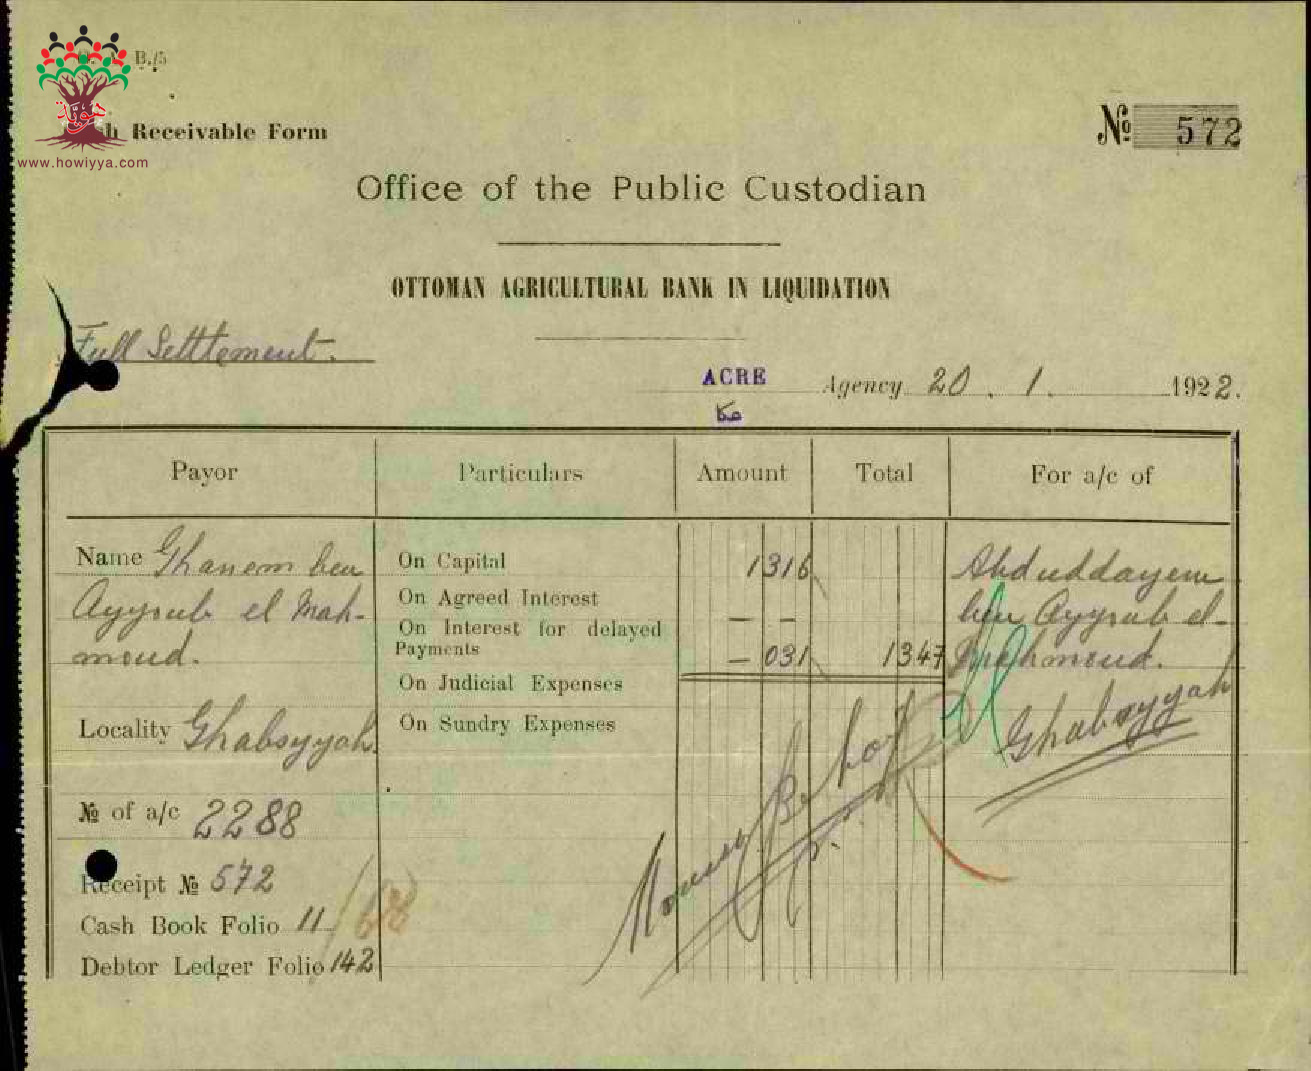 B./5
هوية
www.howiyya.com
Receivable Form
№ 572
Office of the Public Custodian
OTTOMAN AGRICULTURAL BANK IN LIQUIDATION
Full Settlement.
ACRE Agency 20 . 1. 1922.
عكا
Payor Particulars Amount Total For a/c of
Name Ghanem ben
Ayyoub el Mah-
moud.
Locality Ghabsyyah
№ of a/c 2288
Receipt № 572
Cash Book Folio 11
Debtor Ledger Folio 142
On Capital 1316
On Agreed Interest — —
On Interest for delayed
Payments — 031 1347
On Judicial Expenses
On Sundry Expenses
Abduddayem
ben Ayyoub el-
Mahmoud.
Ghabsyyah